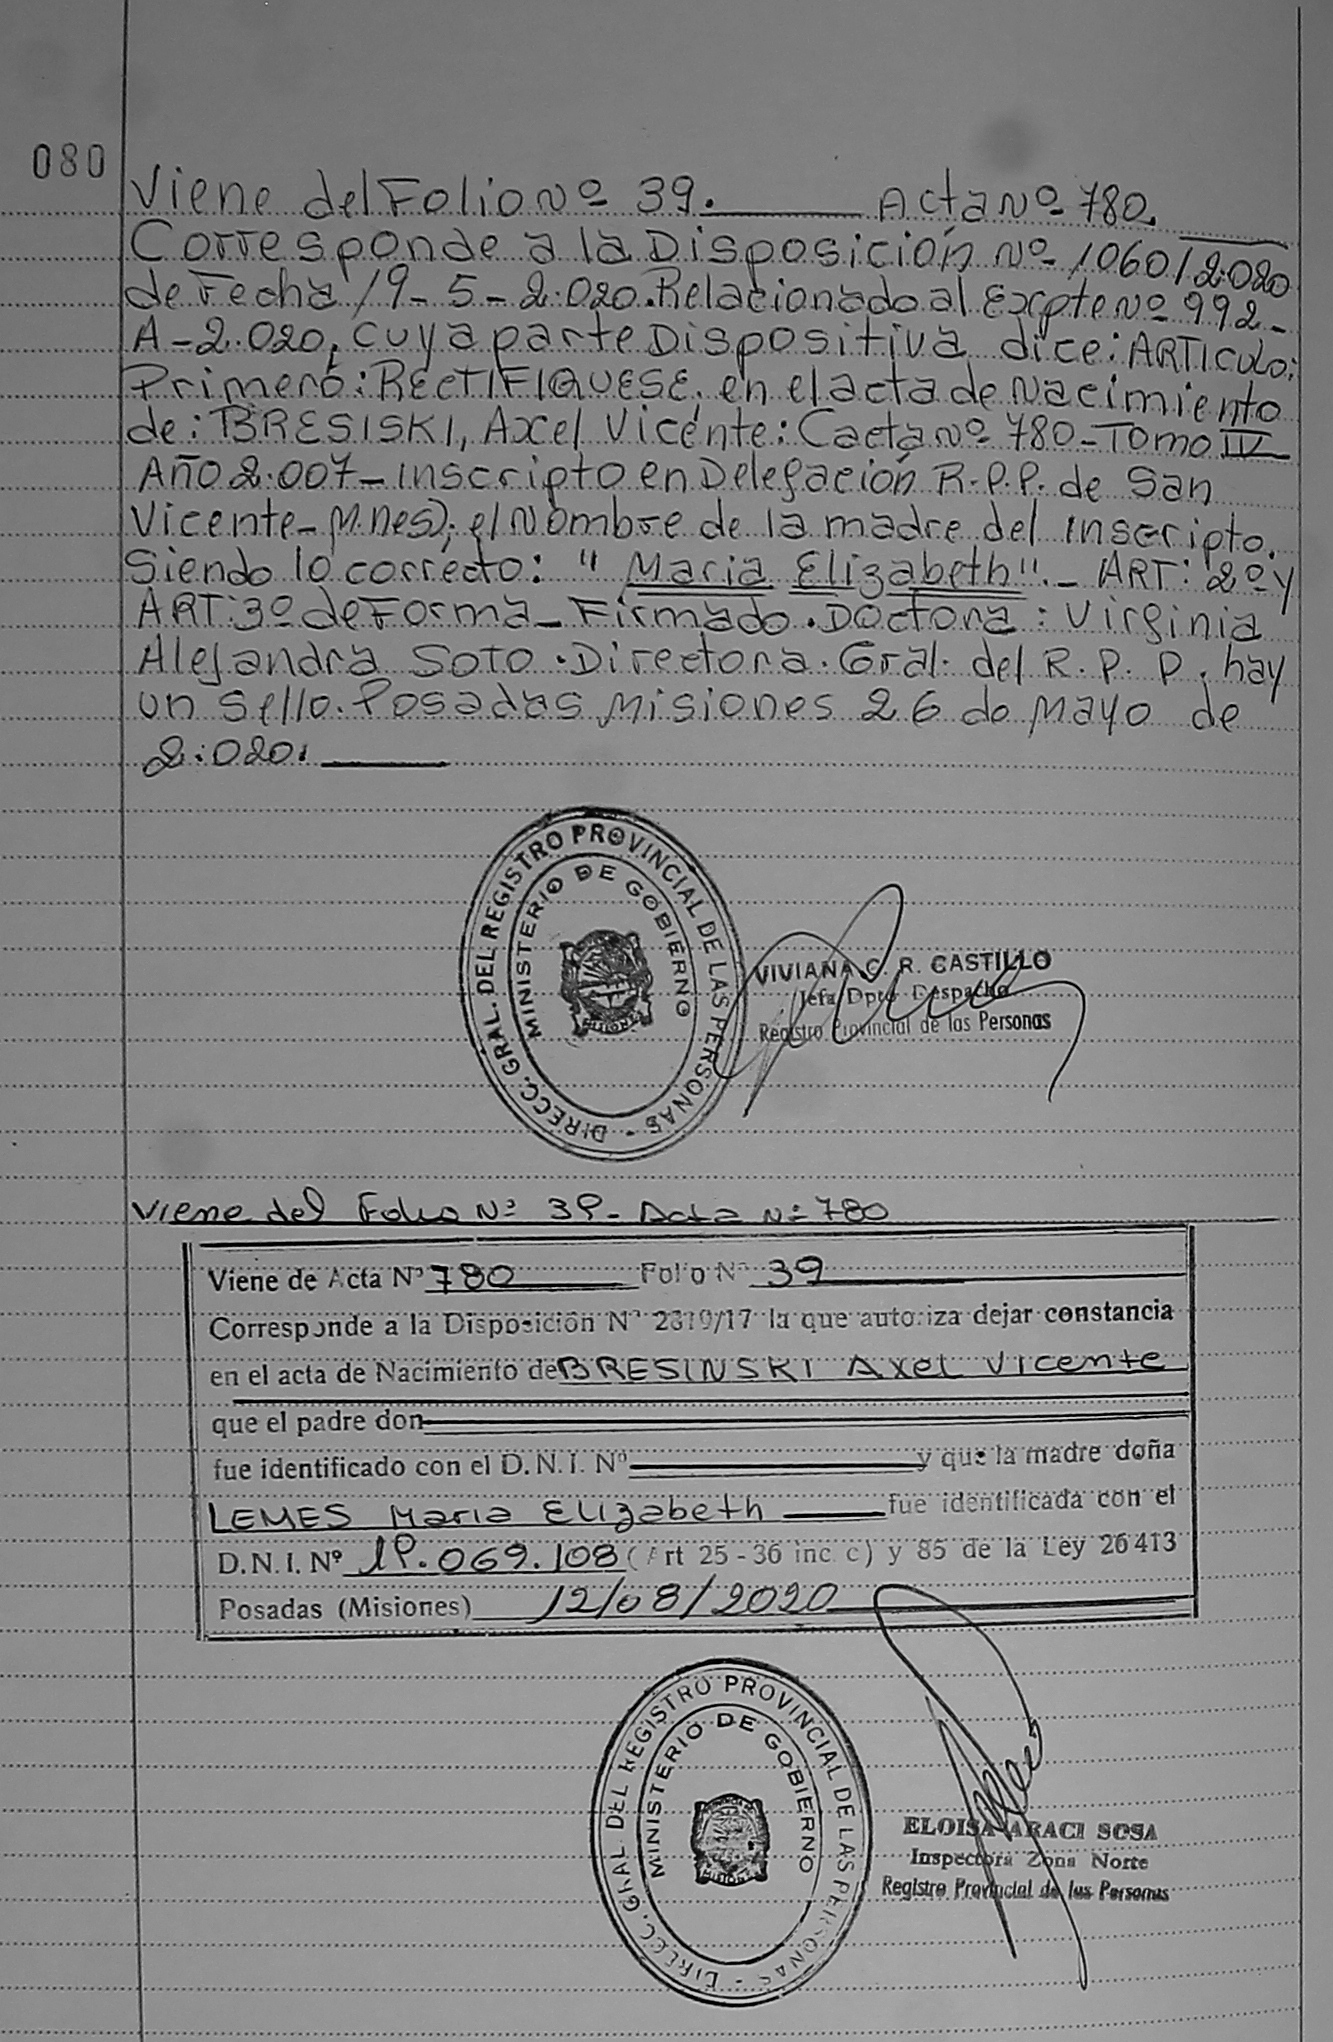 080
Viene del Folio Nº 39. Acta Nº 780.
Corresponde a la Disposición Nº 1060/2.020
de Fecha 19-5-2.020. Relacionado al Expte Nº 992-
A-2.020, cuya parte Dispositiva dice: ARTICULO:
Primero: RECTIFIQUESE, en el acta de Nacimiento
de: BRESISKI, Axcel Vicente: (acta Nº 780-Tomo IV
Año 2.007-Inscripto en Delegación R.P.P. de San
Vicente-M.nes); el Nombre de la madre del Inscripto.
Siendo lo correcto: "Maria Elizabeth".- ART: 2º y
ART: 3º de Forma-Firmado. Doctora: Virginia
Alejandra Soto. Directora. Gral. del R.P.P. hay
un sello. Posadas Misiones 26 de Mayo de
2.020.
DIRECC. GRAL. DEL REGISTRO PROVINCIAL DE LAS PERSONAS -
MINISTERIO DE GOBIERNO
MISIONES
VIVIANA C. R. CASTILLO
Jefa Dpto Despacho
Registro Provincial de las Personas
Viene del Folio Nº 39- Acta Nº 780
Viene de Acta Nº 780 Folio Nº 39
Corresponde a la Disposición Nº 2319/17 la que autoriza dejar constancia
en el acta de Nacimiento de BRESINSKI Axel Vicente
que el padre don
fue identificado con el D.N.I. Nº y que la madre doña
LEMES Maria Elizabeth fue identificada con el
D.N.I. Nº 19.069.108 (Art 25-36 inc c) y 85 de la Ley 26413
Posadas (Misiones) 12/08/2020
DIRECC. GRAL DEL REGISTRO PROVINCIAL DE LAS PERSONAS -
MINISTERIO DE GOBIERNO
MISIONES
ELOISA ARACI SOSA
Inspectora Zona Norte
Registro Provincial de las Personas